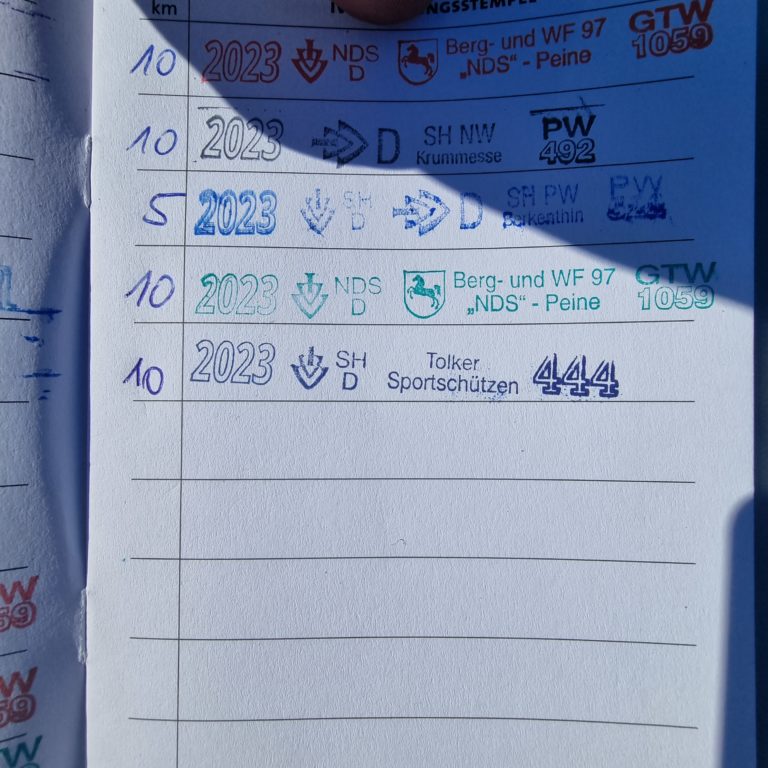 km
NGSSTEMPEL
10 2023 NDS D Berg- und WF 97 „NDS“ - Peine GTW 1059
10 2023 D SH NW Krummesse PW 492
5 2023 SH D D SH PW Berkenthin PW
10 2023 NDS D Berg- und WF 97 „NDS“ - Peine GTW 1059
10 2023 SH D Tolker Sportschützen 444
W
59
W
59
W